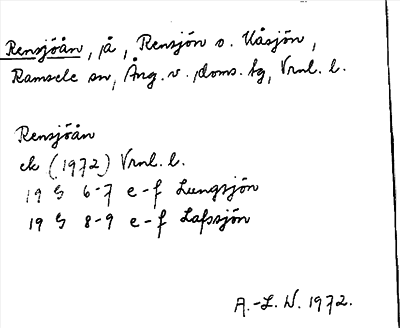 Rensjöån, å, Rensjön o. Uåsjön,
Ramsele sn, Ång. v. doms. tg, Vrnl. l.
Rensjöån
ek (1972) Vrnl. l.
19 G 6-7 e-f Lungsjön
19 G 8-9 e-f Lafssjön
A.-L. W. 1972.